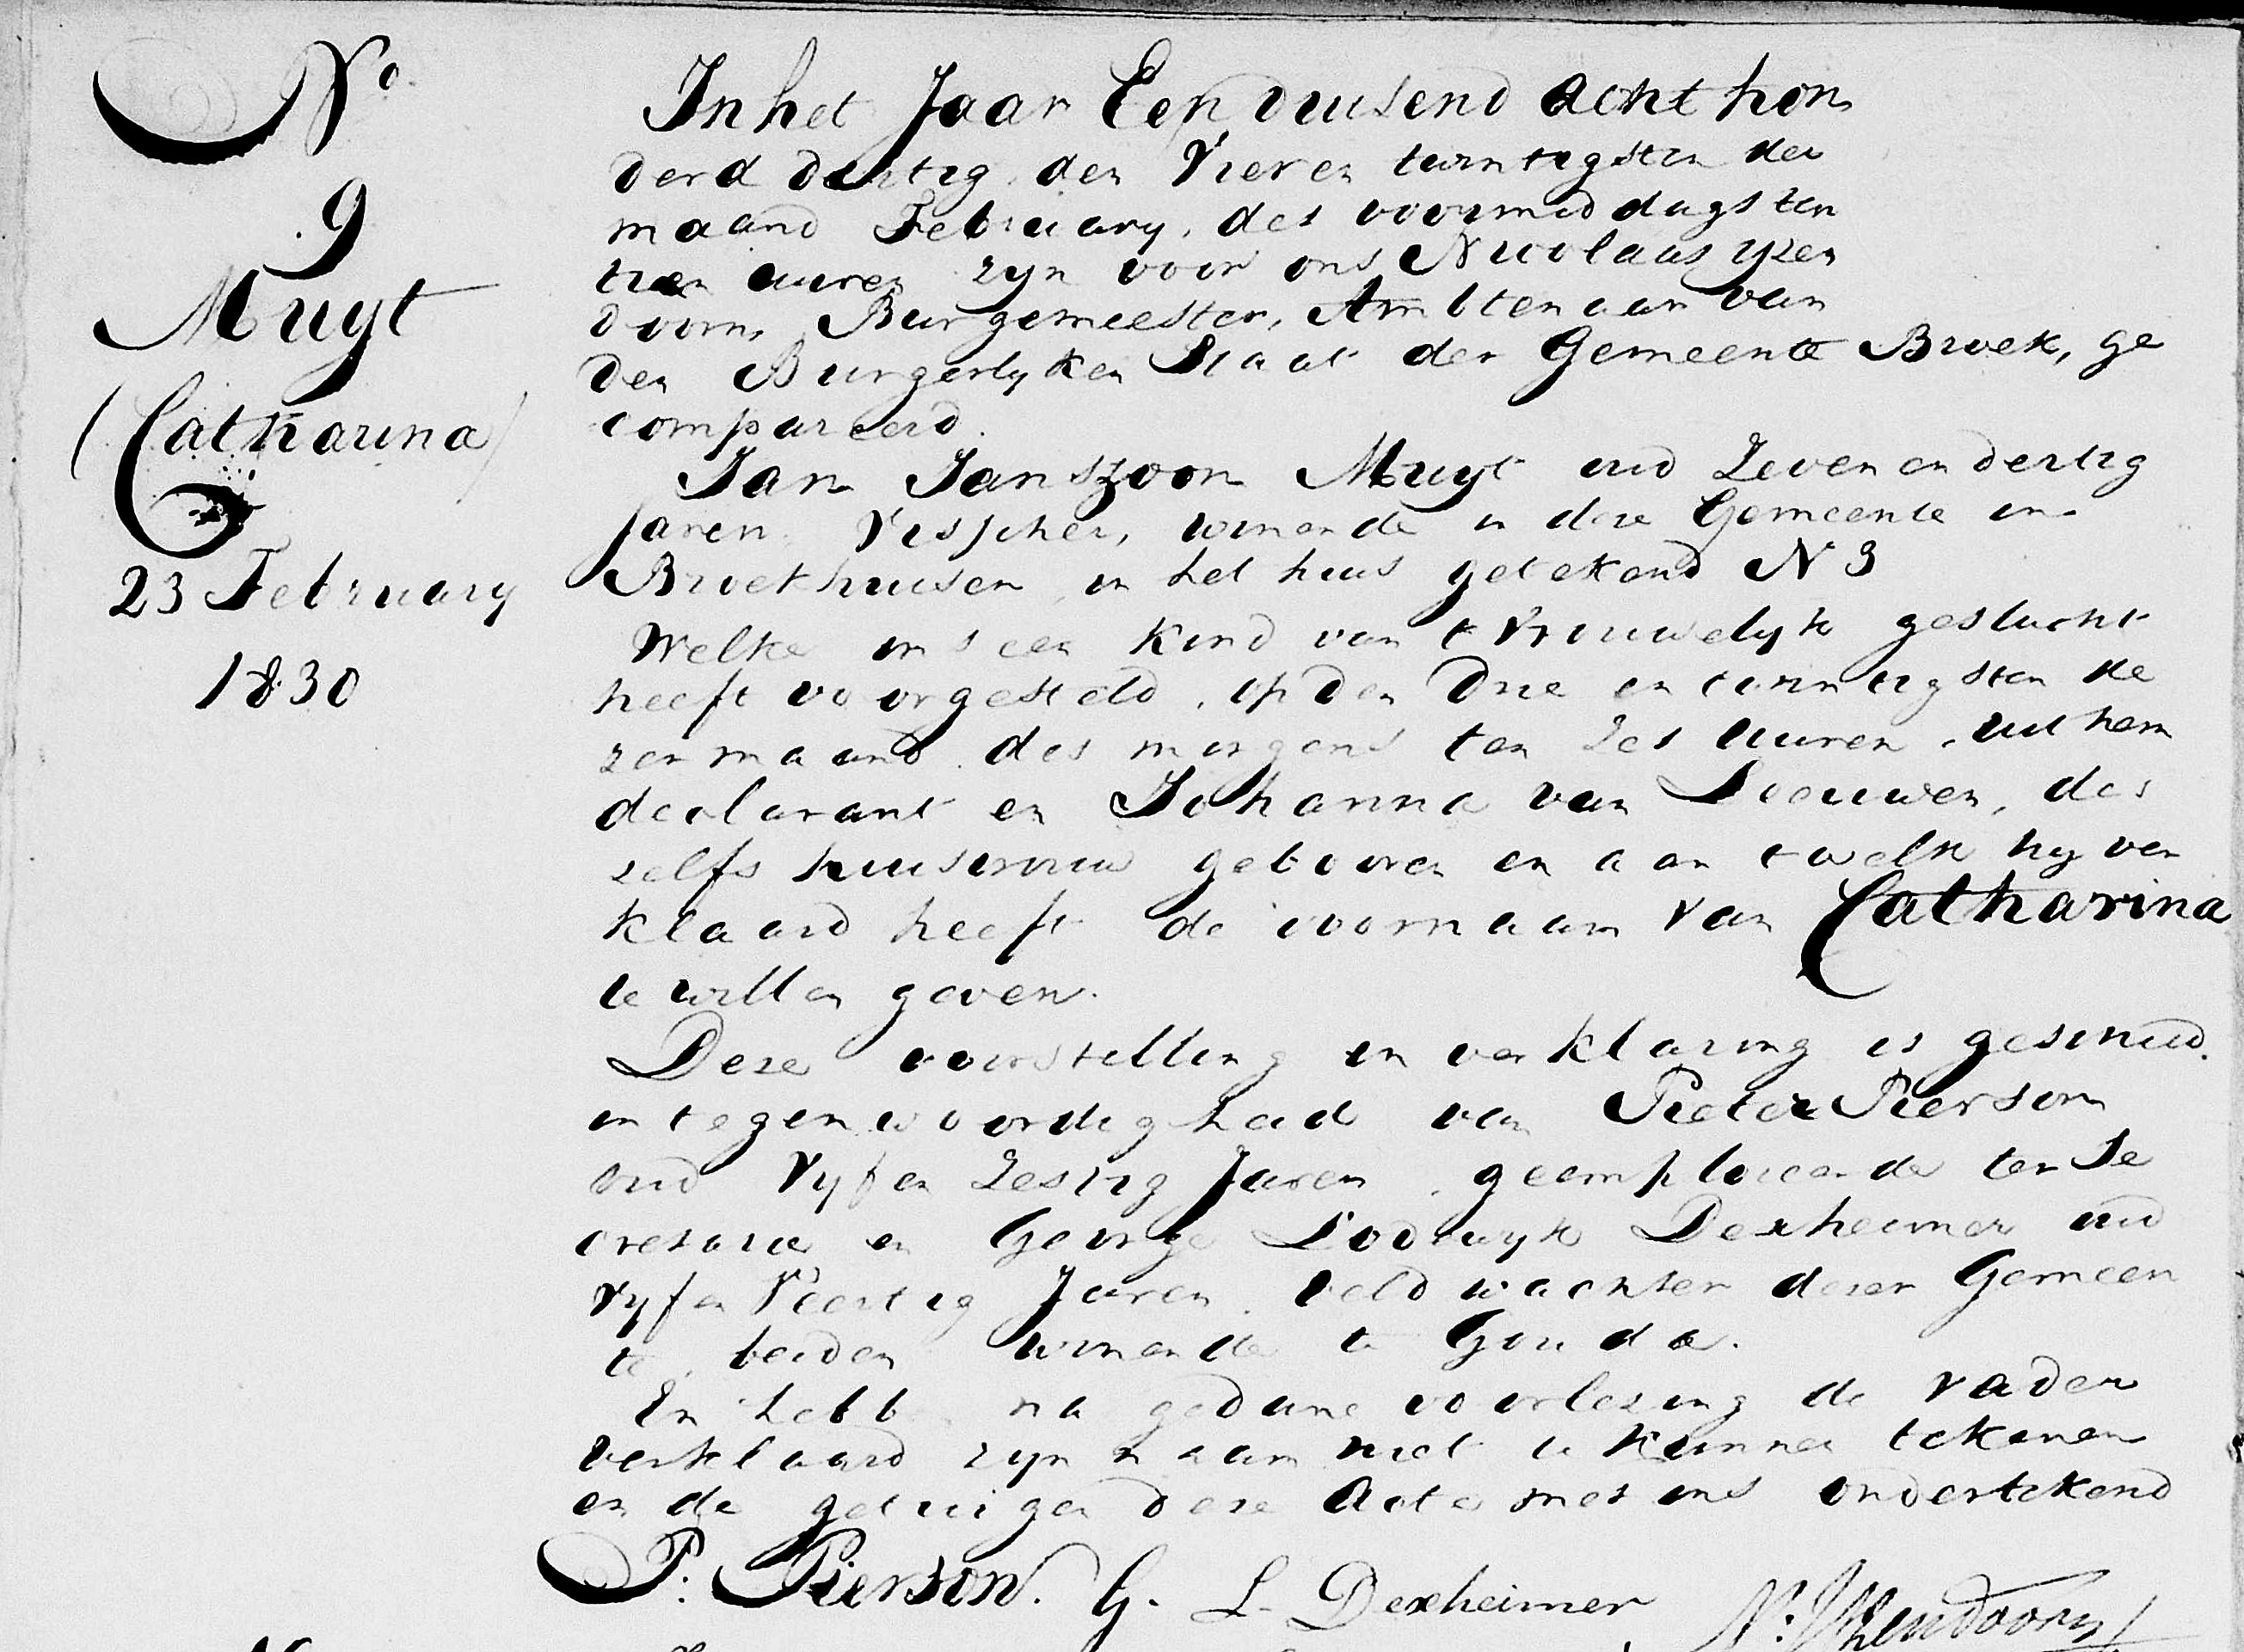 No
9
Muyt
(Catharina)
23 February
1830
In het Jaar Een duusend acht hon
derd dertig den Vier en twintigsten der
maand February, des voormiddags ten
tien uuren zyn voor ons Nicolaas yzen
doorn, Burgemeester, Ambtenaar van
den Burgerlyken Staat der Gemeente Broek, ge
compareerd.
Jan Janszoon Muyt oud Zeven en dertig
Jaren Visscher, wonende in deze Gemeente in
Broekhuisen in het huis getekend N 3
Welke ons een Kind van t Vrouwelyk geslacht
heeft voorgesteld, op den Drie en twintigsten de
zer maand des morgens ten Zes uuren, uit hem
declarant en Johanna van Leeuwen, des
zelfs huisvrouw gebooren en aan twelk hy ver
klaard heeft de voornaam van Catharina
te willen geven.
Deze voorstelling en verklaring is geschied
in tegenwoordigheid van Pieter Pierson
oud Vyf en Zestig Jaren, geemploieerde ter Se
cretarie en George Lodewyk Dexheimer oud
Vyf en Veertig Jaren, veldwachter dezer Gemeen
te, beiden wonende te Gouda.
En hebb na gedane voorlezing de vader
verklaard zyn naam niet te kunnen tekenen
en de getuigen deze Acte met ons ondertekend
P. Pierson. G. L. Dexheimer N. IJzendoorn